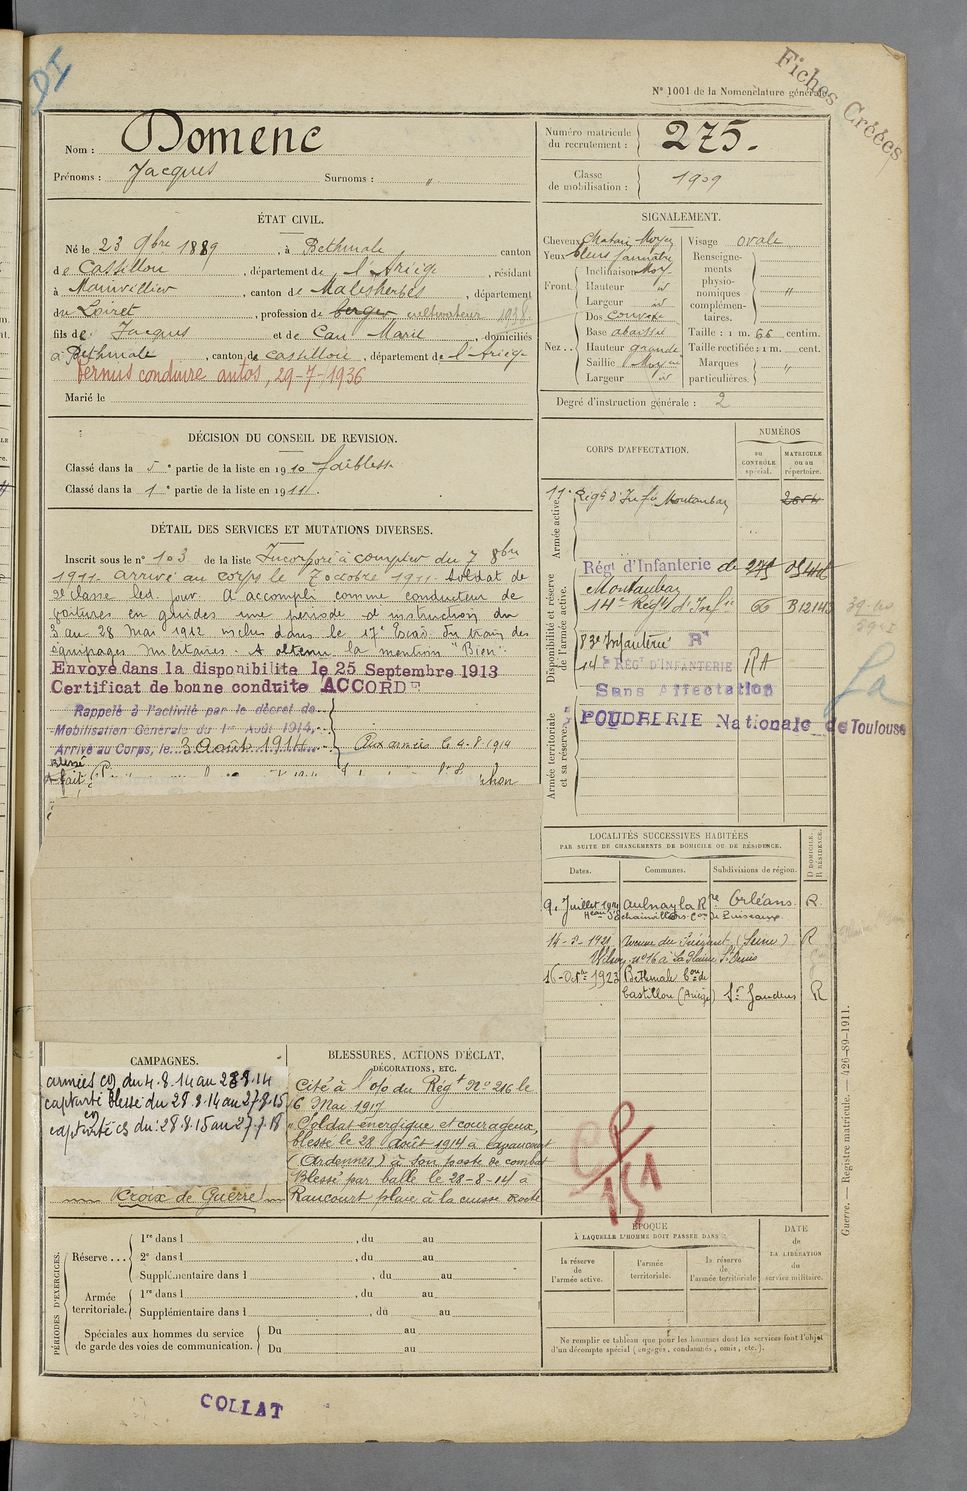 DI
Fiches Créées
N° 1001 de la Nomenclature générale.
Nom : Domenc
Prénoms : Jacques Surnoms : "
Numéro matricule du recrutement : 275.
Classe de mobilisation : 1909
ÉTAT CIVIL.
Né le 23 9bre 1889, à Bethmale canton
de Castillon, département de l'Ariège, résidant
à Manvillier, canton de Malesherbes, département
du Loiret, profession de berger cultivateur 1938
fils de Jacques et de Cau Marie, domiciliés
à Bethmale, canton de Castillon, département de l'Ariège
Permis conduire autos, 29-7-1936
Marié le
SIGNALEMENT.
Cheveux Chatain Moyen
Yeux bleus jaunâtre
Front. Inclinaison Moy.
Hauteur id
Largeur id
Nez.. Dos convexe
Base abaissé
Hauteur grande
Saillie Moyne
Largeur id
Visage ovale
Renseignements physionomiques complémentaires. "
Taille : 1 m. 66 centim.
Taille rectifiée : 1 m. cent.
Marques particulières. "
Degré d'instruction générale : 2
DÉCISION DU CONSEIL DE REVISION.
Classé dans la 5e partie de la liste en 1910 faiblesse
Classé dans la 1e partie de la liste en 1911.
DÉTAIL DES SERVICES ET MUTATIONS DIVERSES.
Inscrit sous le n° 103 de la liste Incorporé à compter du 7 8bre
1911 arrivé au corps le 7 octobre 1911. Soldat de
2e classe led. jour. A accompli comme conducteur de
voitures en guides une période d'instruction du
3 au 28 Mai 1912 inclus dans le 17e Escad. du train des
équipages militaires. A obtenu la mention "Bien".
Envoyé dans la disponibilité le 25 Septembre 1913
Certificat de bonne conduite ACCORDÉ
Rappelé à l'activité par le décret de
Mobilisation Générale du 1er Août 1914,
Arrivé au Corps, le 3 Août 1914 Aux armées le 4-8-1914
Blessé
A fait
CORPS D'AFFECTATION.
NUMÉROS
au CONTRÔLE spécial.
MATRICULE ou au répertoire.
Armée active.
11e Régt d'Infie Montauban
Disponibilité et réserve de l'armée active.
Régt d'Infanterie de
Montauban
14e Régt d'Infie 66
83e Infanterie Rt
14e RÉGt D'INFANTERIE RA
Sans Affectation
Armée territoriale et sa réserve.
POUDRERIE Nationale de Toulouse
La
LOCALITÉS SUCCESSIVES HABITÉES
PAR SUITE DE CHANGEMENTS DE DOMICILE OU DE RÉSIDENCE.
Dates. Communes. Subdivisions de région. D DOMICILE. R RÉSIDENCE.
9. Juillet Aulnay la Rre Orléans. R
Heau d'Echainvilliers Con de Puiseaux
14-8-1921 Avenue du Président (Seine) R
Wilson n° 16 à La Plaine St Denis
16-Octre 1923 Bethmale Con de
Castillon (Ariège) St Gaudens R
CAMPAGNES.
armées CD du 4.8.14 au 28.8.14
captivité blessé du 28.8.14 au 27.8.15
en captivité CS du : 28.8.15 au 27.7.18
Croix de Guerre
BLESSURES, ACTIONS D'ÉCLAT,
DÉCORATIONS, ETC.
Cité à l'o/o du Régt N° 216 le
6 Mai 1917
"Soldat énergique et courageux,
blessé le 28 Août 1914 à Raucourt
(Ardennes) à son poste de combat
Blessé par balle le 28-8-14 à
Raucourt plaie à la cuisse droite
PÉRIODES D'EXERCICES.
Réserve ... 1re dans l , du au
2e dans l , du au
Supplémentaire dans l , du au
Armée territoriale. 1re dans l , du au
Supplémentaire dans l , du au
Spéciales aux hommes du service de garde des voies de communication. Du au
Du au
ÉPOQUE
À LAQUELLE L'HOMME DOIT PASSER DANS :
la réserve de l'armée active.
l'armée territoriale.
la réserve de l'armée territoriale
DATE de LA LIBÉRATION du service militaire.
Ne remplir ce tableau que pour les hommes dont les services font l'objet
d'un décompte spécial (engagés, condamnés, omis, etc.).
Guerre. — Registre matricule. — 426-89-1911.
COLLAT